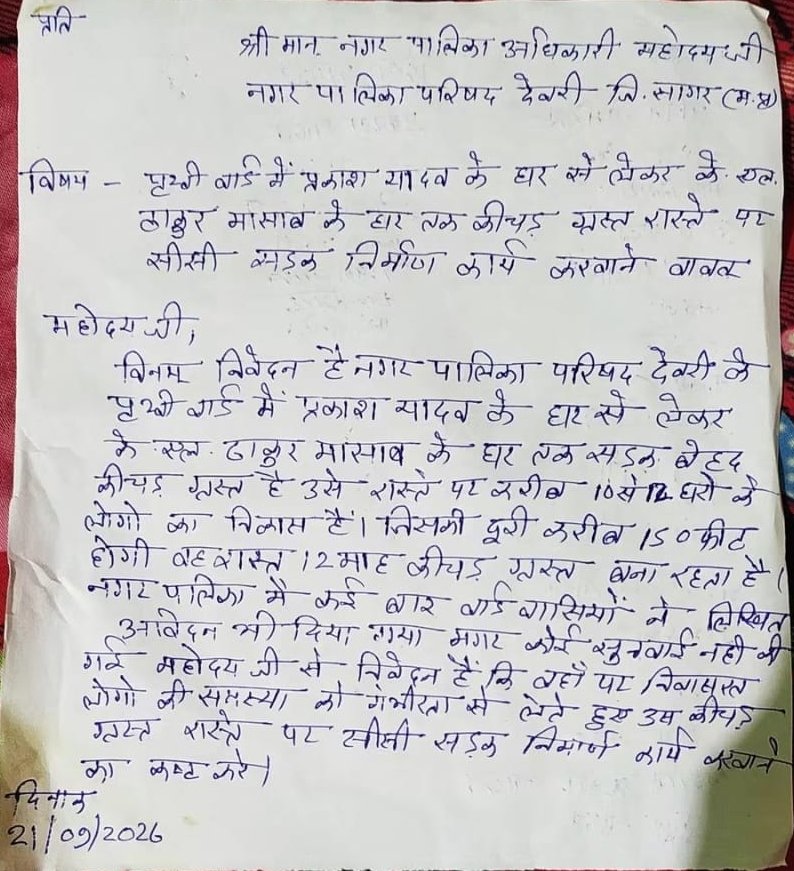 प्रति
श्री मान. नगर पालिका अधिकारी महोदय जी
नगर पालिका परिषद देवरी जि. सागर (म.प्र)
विषय - पृथ्वी वार्ड में प्रकाश यादव के घर से लेकर के. एल.
ठाकुर मासाब के घर तक कीचड़ ग्रस्त रास्ते पर
सीसी सड़क निर्माण कार्य करवाने वावत
महोदय जी,
विनम्र निवेदन है नगर पालिका परिषद देवरी के
पृथ्वी वार्ड में प्रकाश यादव के घर से लेकर
के. एल. ठाकुर मासाब के घर तक सड़क बेहद
कीचड़ ग्रस्त है उसे रास्ते पर करीब 10 से 12 घरो के
लोगो का निकास हैं। जिसकी दूरी करीब 150 फीट
होगी वह रास्त 12 माह कीचड़ ग्रस्त बना रहता है।
नगर पालिका मे कई बार वार्ड वासियों ने लिखित
आवेदन भी दिया गया मगर कोई सुनवाई नही की
गई महोदय जी से निवेदन हैं कि वहाँ पर निवासरत
लोगो की समस्या को गंभीरता से लेते हुए उस कीचड़
ग्रस्त रास्ते पर सीसी सड़क निमार्ण कार्य करवाने
का कष्ट करे।
दिनांक
21/09/2026